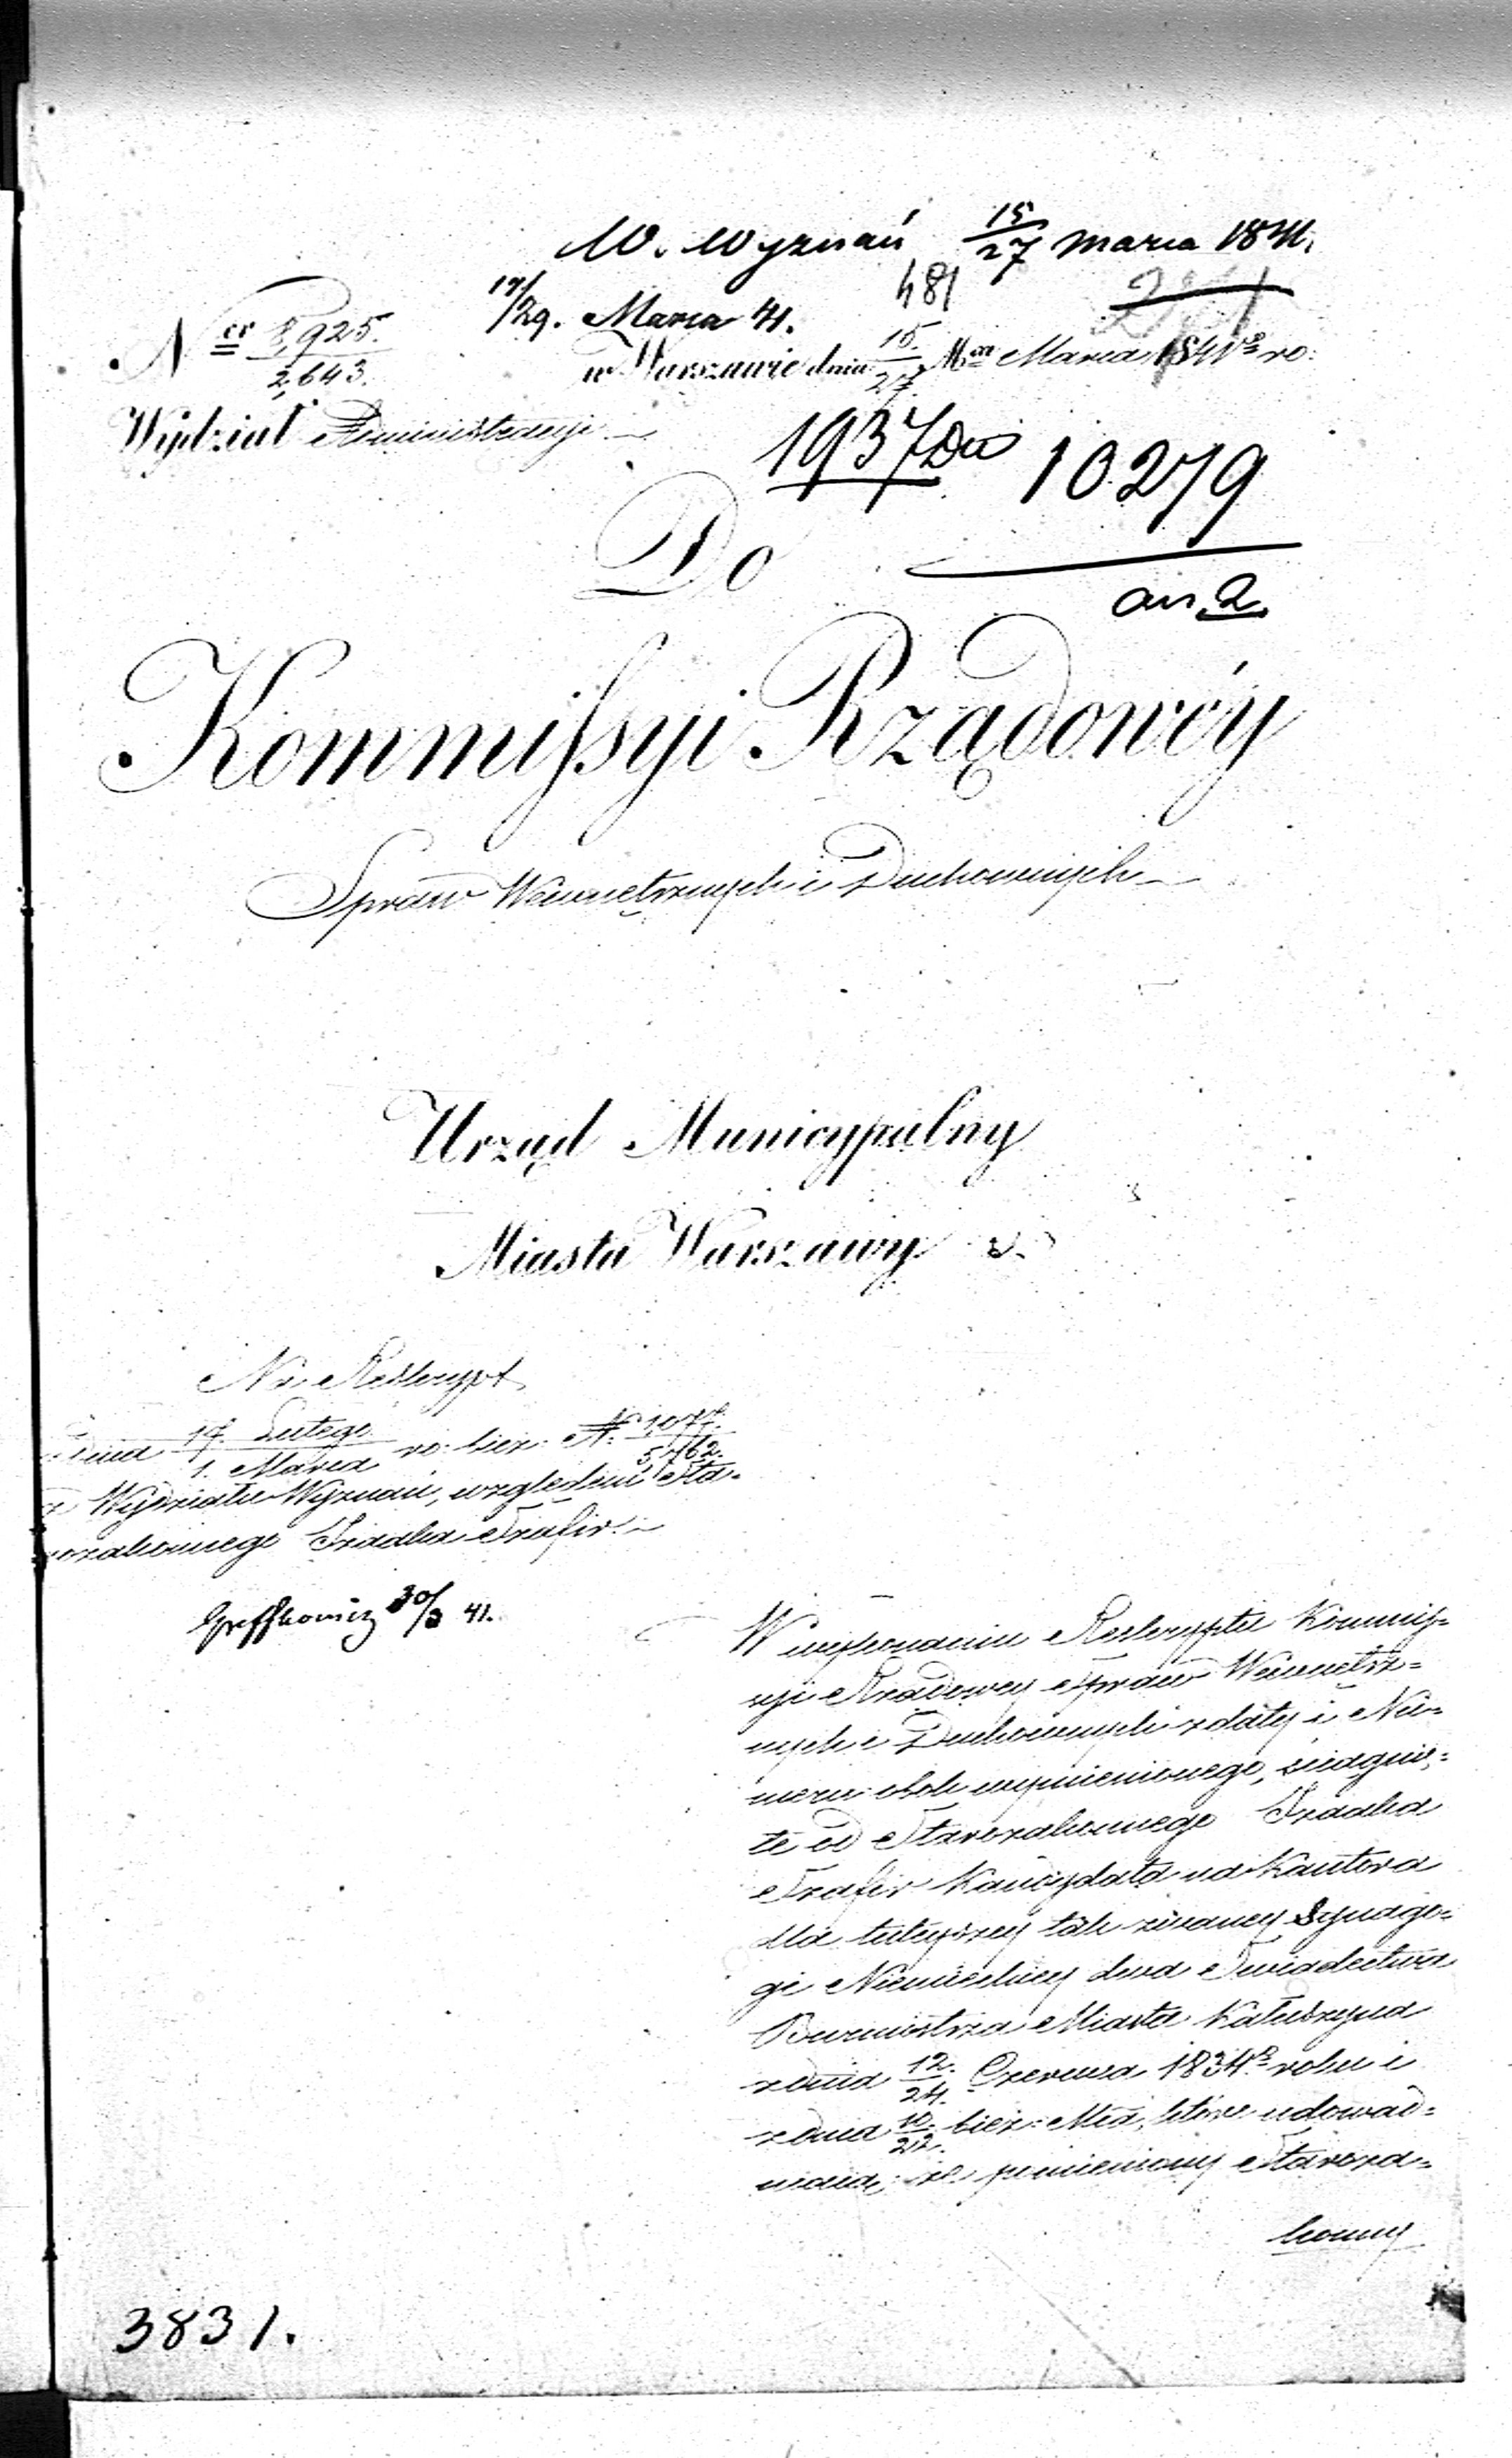 W. Wyznań 15/27 Marca 1841.
17/29. Marca 41.
481
Ner 8,925. / 2,643.
w Warszawie dnia 15./27. Mca Marca 1841go ro:
Wydział Administracyi
1937
10279
Do
Kommissyi Rządowéy
Spraw Wewnętrznych i Duchownych
Urząd Municypalny
Miasta Warszawy
Na Reskrypt
z dnia 17. Lutego / 1. Marca ro: bież: N: 1077. / 5,762.
z Wydziału Wyznań, względem Sta-
rozakonnego Szadka Szafir.
30/3 41.
W wykonaniu Reskryptu Kommis-
syi Rządowey Spraw Wewnętrz-
nych i Duchownych z daty i Nu-
meru obok wymienionego, ściągnię-
te od Starozakonnego Szadka
Szafir Kandydata na Kantora
dla tuteyszey tak zwaney Synago-
gi Niemieckiey dwa Świadectwa
Burmistrza Miasta Kałuszyna
z dnia 12./24. Czerwca 1834go roku i
z dnia 10./22. bież: Mca, które udowad-
niaią, że pomieniony Staroza-
konny
3831.